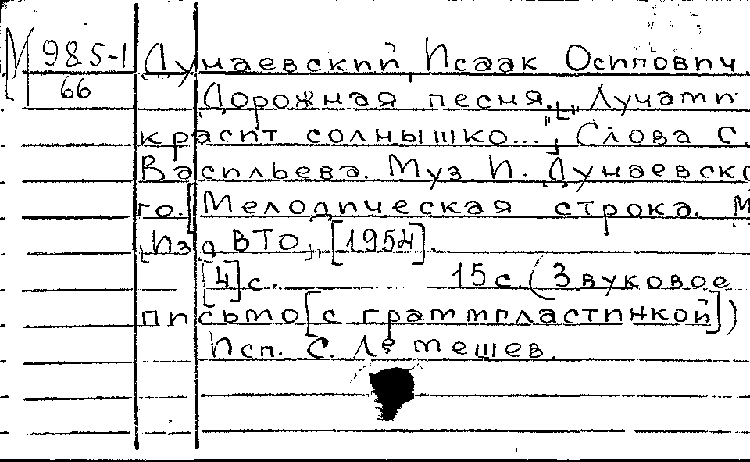 М 985-1 Дунаевский, Исаак Осипович.
66 Дорожная песня. ["Лучами
красит солнышко..."] Слова С.
Васильева. Муз. И. Дунаевско
го. [Мелодическая строка. М
"Изд. ВТО", [1954].
[4] с. 15 с (Звуковое
письмо [с грампластинкой])
Исп. С. Лемешев.